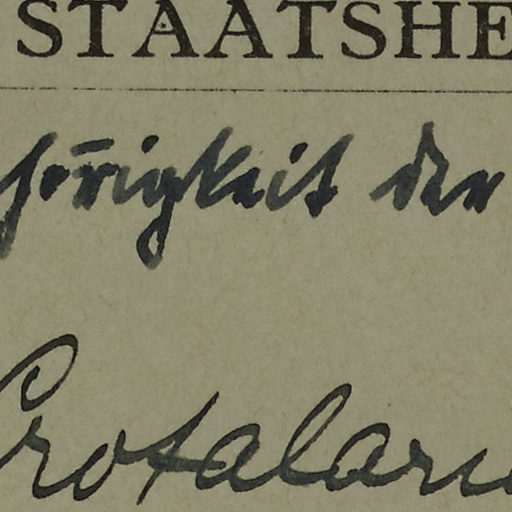 STAATSHE
hörigkeit der
Crotalaria